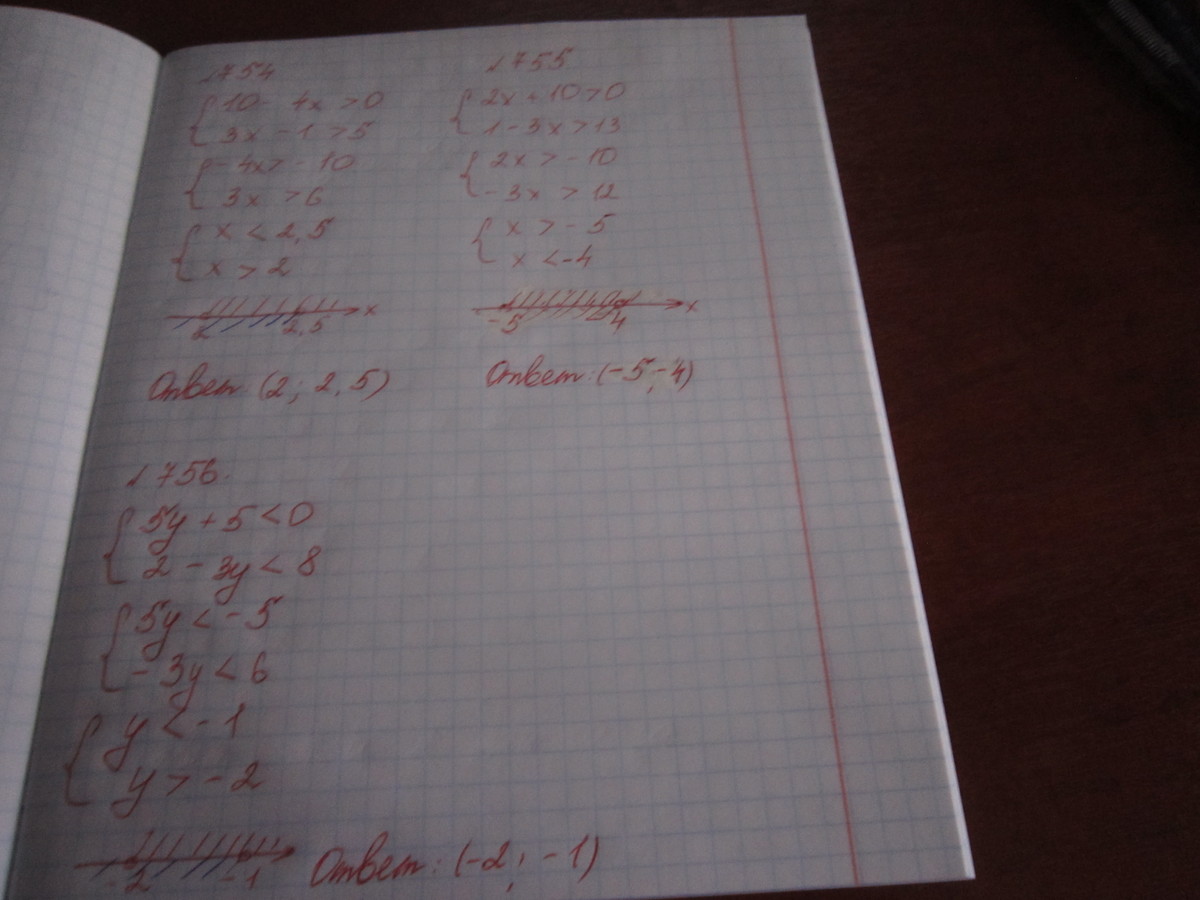 1754
{10 - 4x > 0
3x - 1 > 5
{- 4x > - 10
3x > 6
{x < 2,5
x > 2
2 2,5 x
Ответ: (2; 2,5)
1755
{2x + 10 > 0
1 - 3x > 13
{2x > - 10
- 3x > 12
{x > - 5
x < -4
-5 -4 x
Ответ: (-5; -4)
1756.
{5y + 5 < 0
2 - 3y < 8
{5y < - 5
- 3y < 6
{y < - 1
y > - 2
-2 -1
Ответ: (-2; -1)